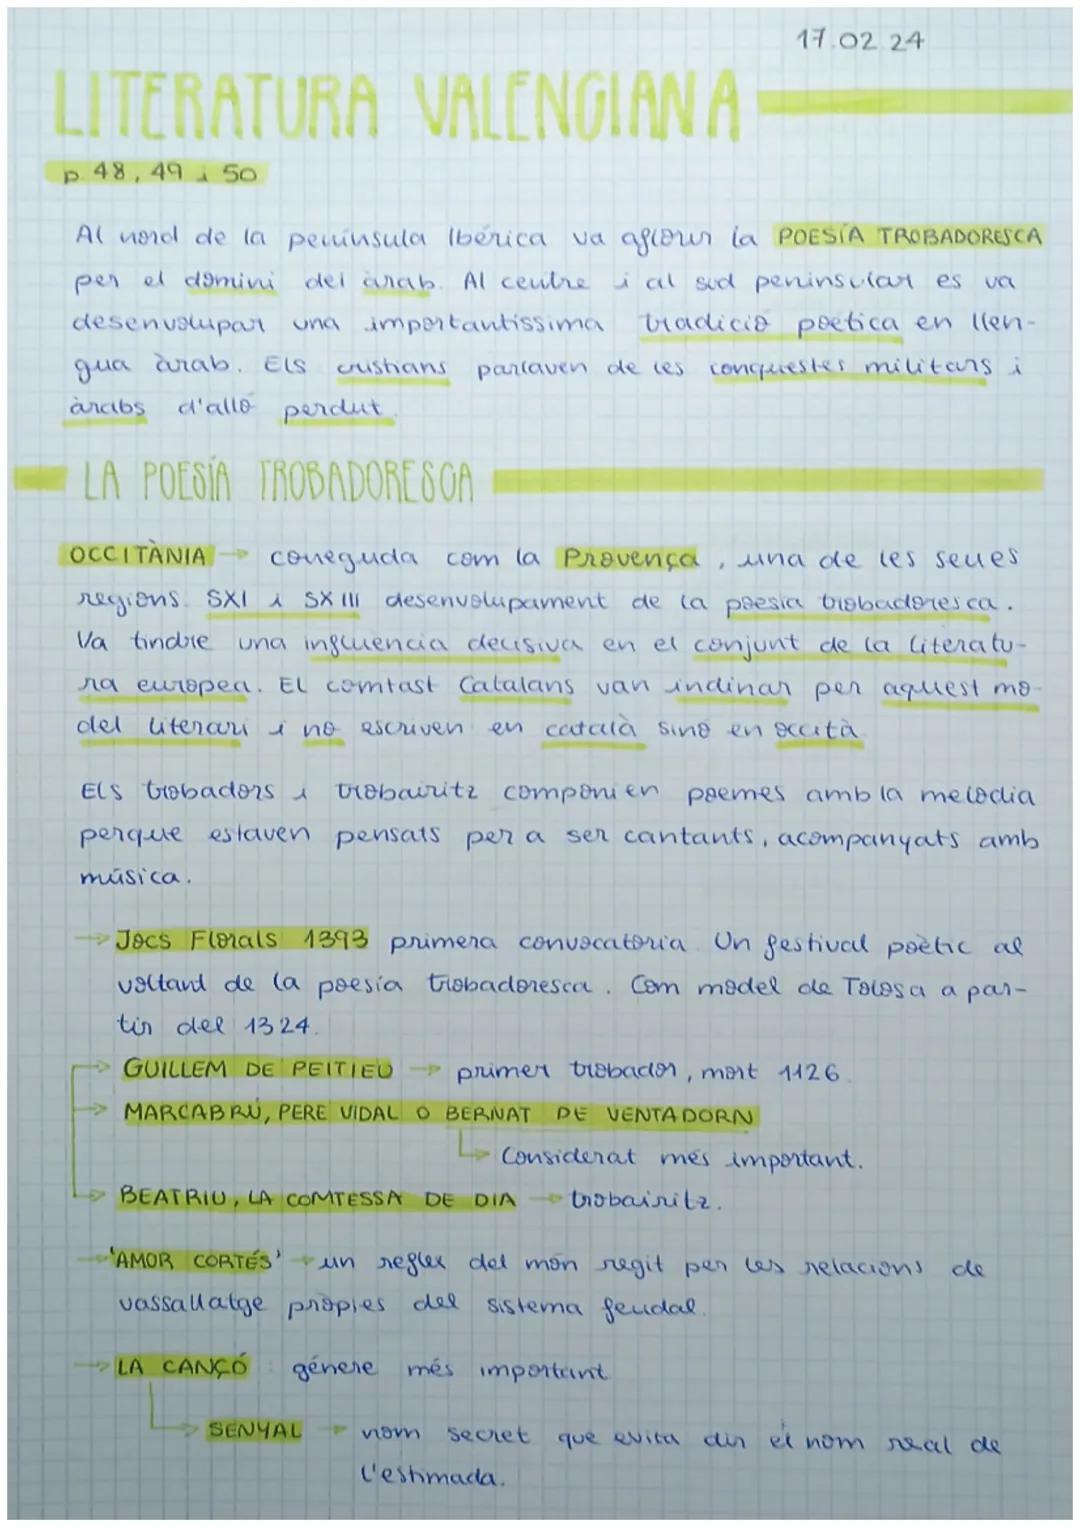 17.02.24
LITERATURA VALENCIANA
p 48, 49 i 50
Al nord de la península Ibérica va aflorir la POESÍA TROBADORESCA
per el domini del àrab. Al centre i al sud peninsular es va
desenvolupar una importantíssima tradició poètica en llen-
gua àrab. Els cristians parlaven de les conquestes militars i
àrabs d'alló perdut.
LA POESÍA TROBADORESCA
OCCITÀNIA → coneguda com la Provença, una de les seues
regions. SXI i SXIII desenvolupament de la poesia trobadoresca.
Va tindre una influència decisiva en el conjunt de la literatu-
ra europea. El comtast Catalans van indinar per aquest mo-
del literari i no escriven en català sinó en occità.
Els trobadors i trobairitz componien poemes amb la melodia
perque estaven pensats per a ser cantants, acompanyats amb
música.
→ Jocs Florals 1393 primera convocatoria. Un festival poètic al
voltant de la poesía trobadoresca. Com model de Tolosa a par-
tir del 1324.
→ GUILLEM DE PEITIEU → primer trobador, mort 1126.
→ MARCABRÚ, PERE VIDAL O BERNAT DE VENTADORN
→ Considerat més important.
→ BEATRIU, LA COMTESSA DE DIA → trobairitz.
→ 'AMOR CORTÉS' → un reflex del món regit per les relacions de
vassallatge pròpies del sistema feudal.
→ LA CANÇÓ : génere més important
→ SENYAL → nom secret que evita dir el nom real de
l'estimada.